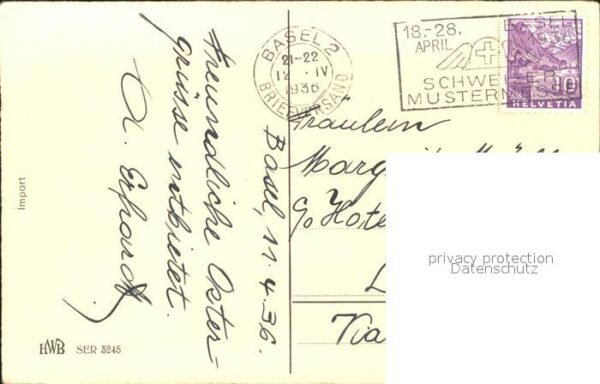 Basel, 11.4.36.
Freundliche Oster-
grüsse entbietet
Import
HWB SER 5245
BASEL 2
21-22
12. IV
1936
BRIEFVERSAND
18.-28.
APRIL
BASEL
1936
SCHWEIZER
MUSTERMESSE
10
HELVETIA
Fräulein
c/o
Via
privacy protection
Datenschutz